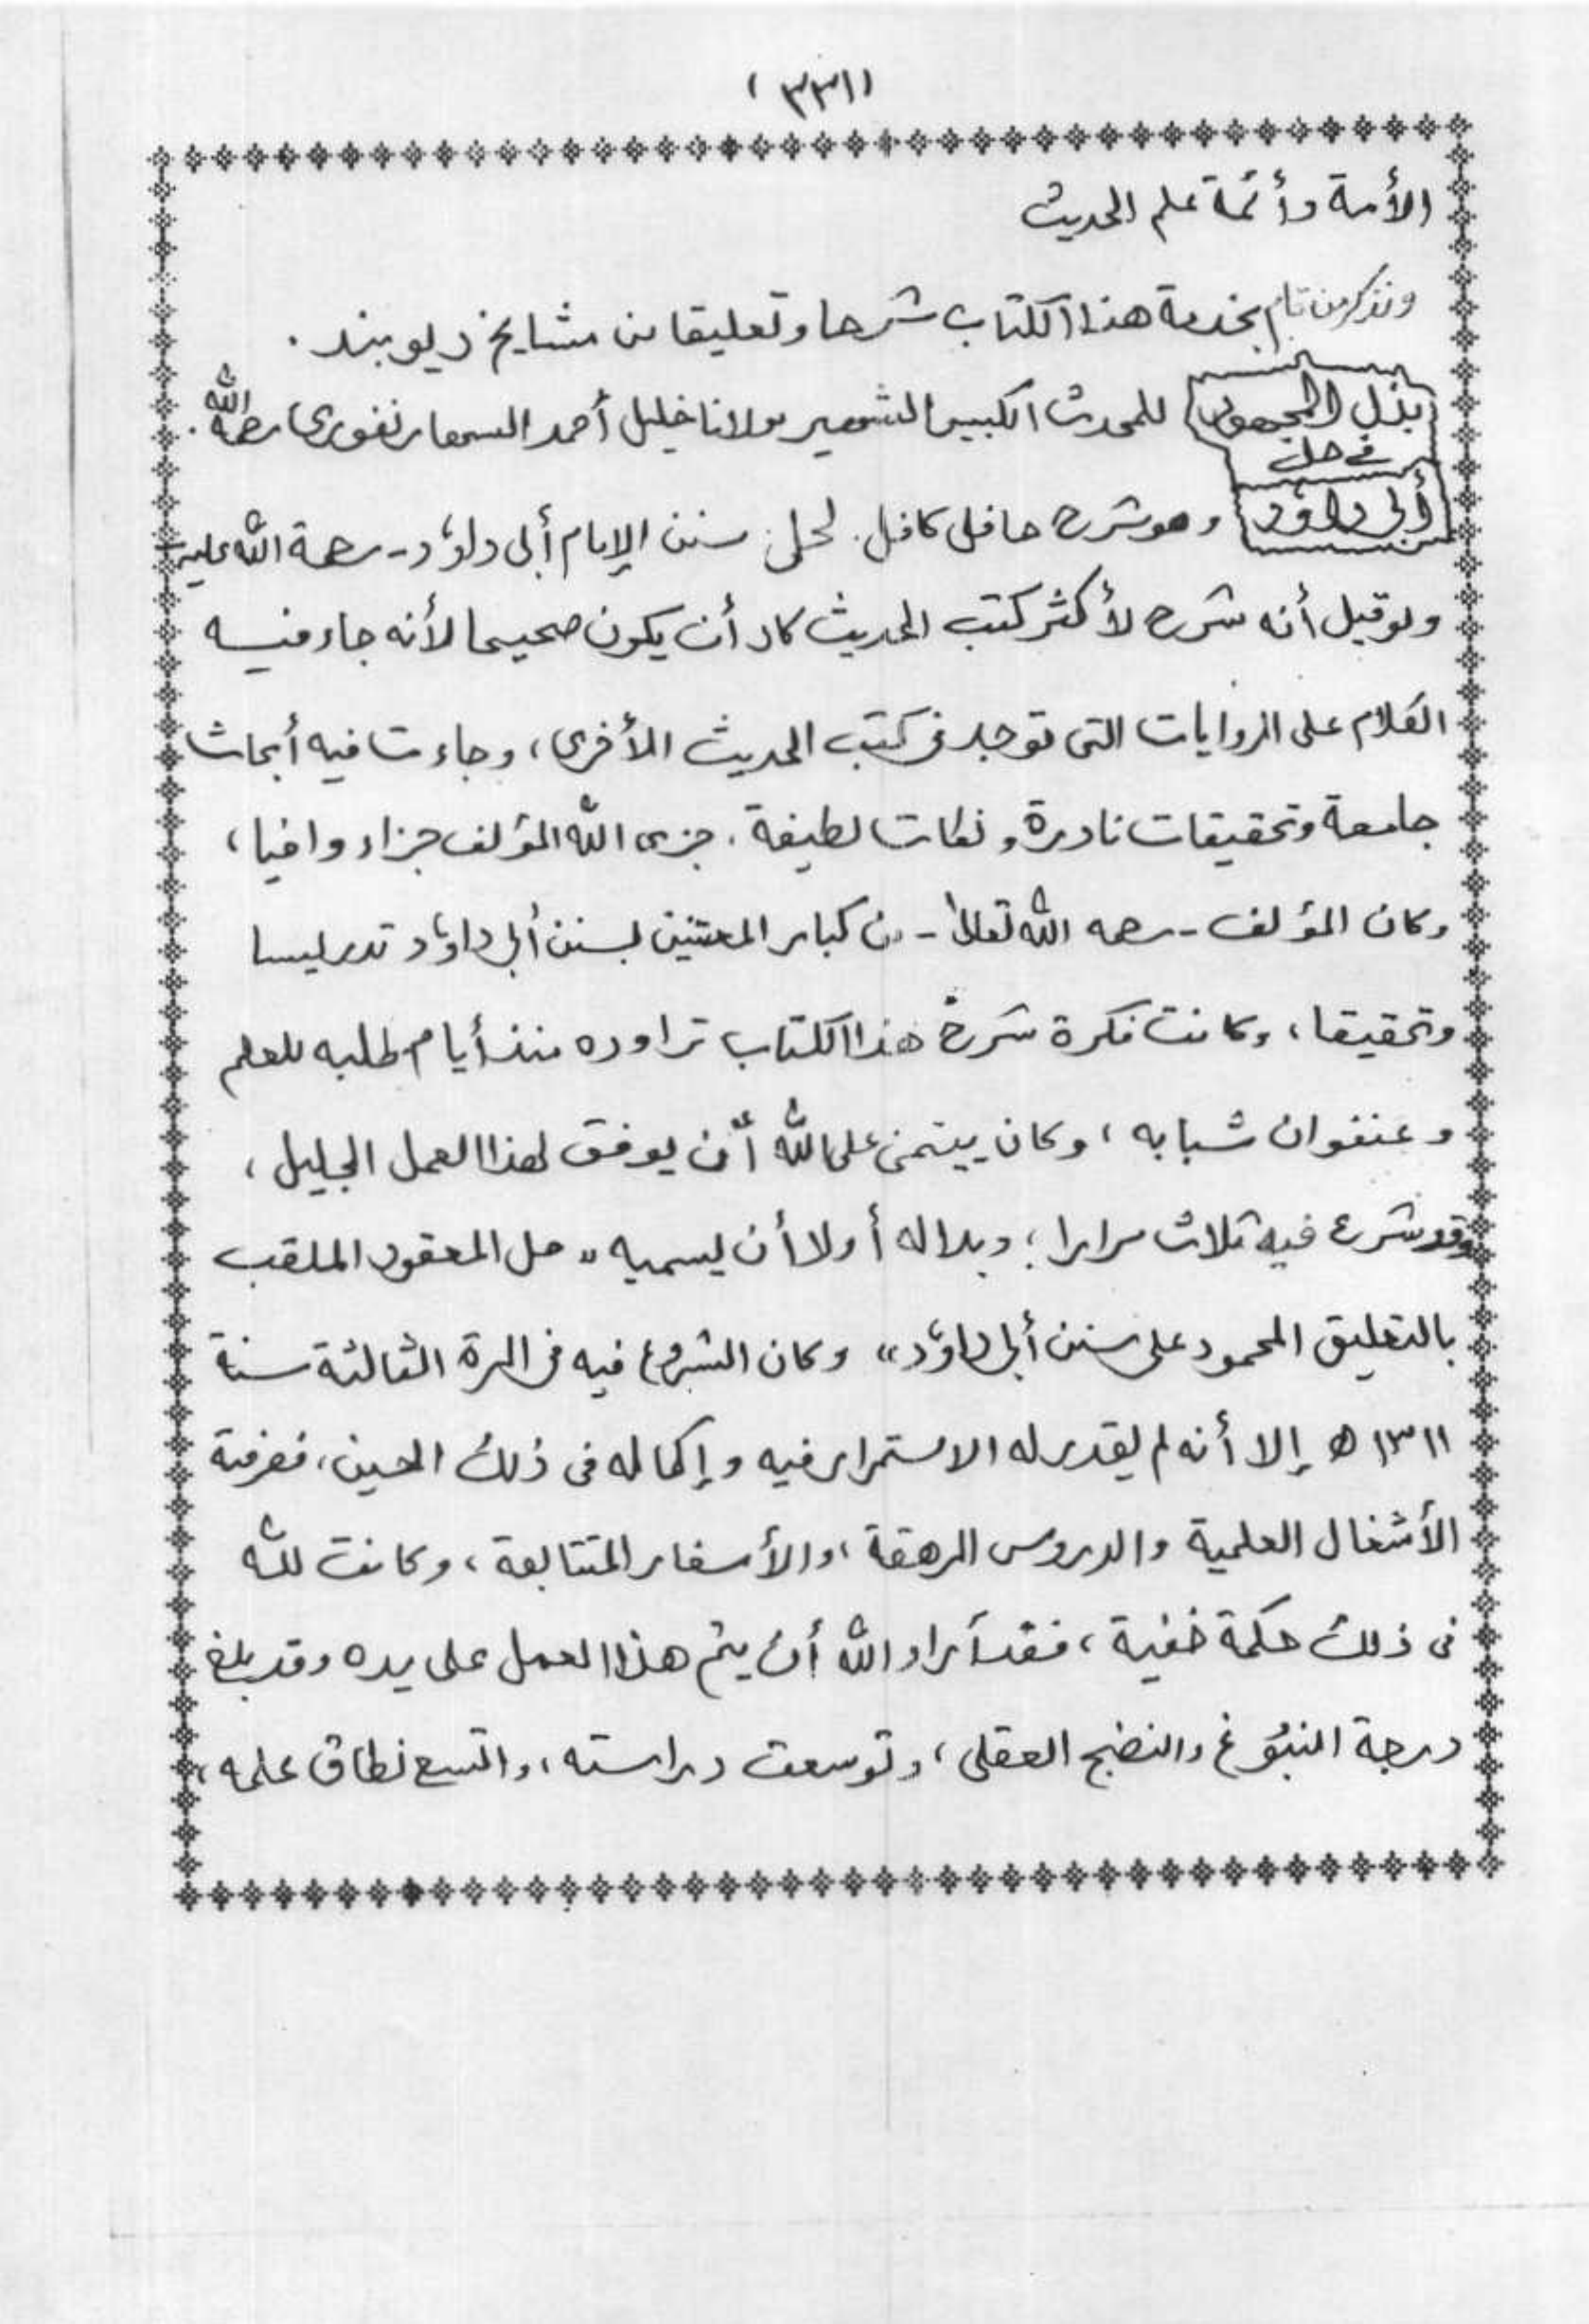 (٣٣١)
الأمة وأئمة علم الحديث
ونذكر من قام بخدمة هذا الكتاب شرحا وتعليقا من مشايخ ديوبند .
بذل المجهود للمحدث الكبير الشهير مولانا خليل أحمد السهارنفوري رحمه الله .
في حل
أبى داؤد وهو شرح حافل كافل لحل سنن الإمام أبى داؤد - رحمة الله عليه -
ولو قيل أنه شرح لأكثر كتب الحديث كاد أن يكون صحيحا لأنه جاء فيه
الكلام على الروايات التى توجد فى كتب الحديث الأخرى، وجاءت فيه أبحاث
جامعة وتحقيقات نادرة، ونكات لطيفة . جزى الله المؤلف جزاء وافيا ،
وكان المؤلف - رحمه الله تعالىٰ - من كبار المعتنين بسنن أبى داؤد تدريسا
وتحقيقا ، وكانت فكرة شرح هذا الكتاب تراوده منذ أيام طلبه للعلم
وعنفوان شبابه ، وكان يتمنى على الله أن يوفق لهذا العمل الجليل ،
وقد شرع فيه ثلاث مرارا ؛ وبدا له أولا أن يسميه "حل المعقود الملقب
بالتعليق المحمود على سنن أبى داؤد" وكان الشروع فيه فى المرة الثالثة سنة
١٣١١ ه إلا أنه لم يقدر له الاستمرار فيه وإكماله فى ذلك الحين ، فصرفته
الأشغال العلمية والدروس المرهقة ، والأسفار المتتابعة ، وكانت لله
فى ذلك حكمة خفية ، فقد أراد الله أن يتم هذا العمل على يده وقد بلغ
درجة النبوغ والنضج العقلى ، وتوسعت دراسته ، واتسع نطاق علمه ،